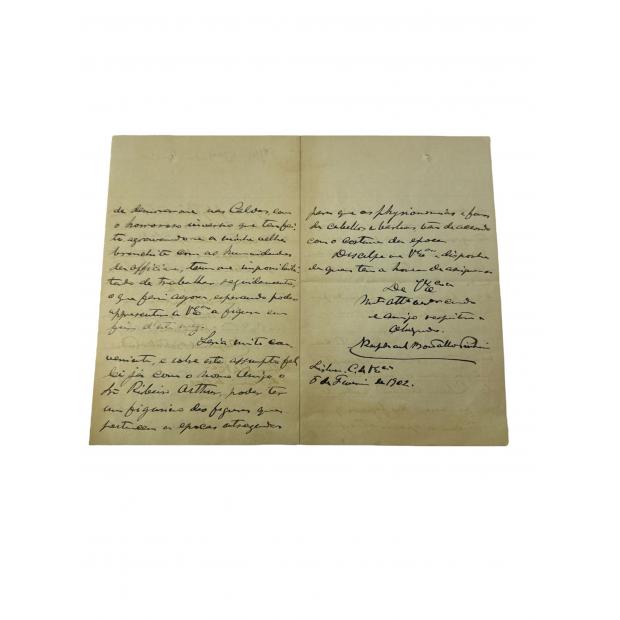 de demorar-me nas Caldas, com
o horroroso inverno que tem fei-
to aggravando-se a minha velha
bronchite com as humidades
das officinas, tem-me impossibili-
tado de trabalhar seguidamente,
o que farei agora, esperando poder
apresentar a VEª a figura em
d'este mez.
Seria muito con-
veniente, e sobre este assumpto fal-
lei já com o nosso amigo o
Sr Ribeiro Arthur, poder ter
um figurino das figuras que
pertencem as epocas
para que as physionomias e
de cabellos e barbas vão de accordo
com o costume da epoca.
Desculpe-me VEª e disponha
de quem tem a honra de assignar-se
De VEª
Mto attº
e amigo respeitoso
obrigado
Raphael Bordallo Pinheiro
Lisboa, C. de VEª
5 de 1902.